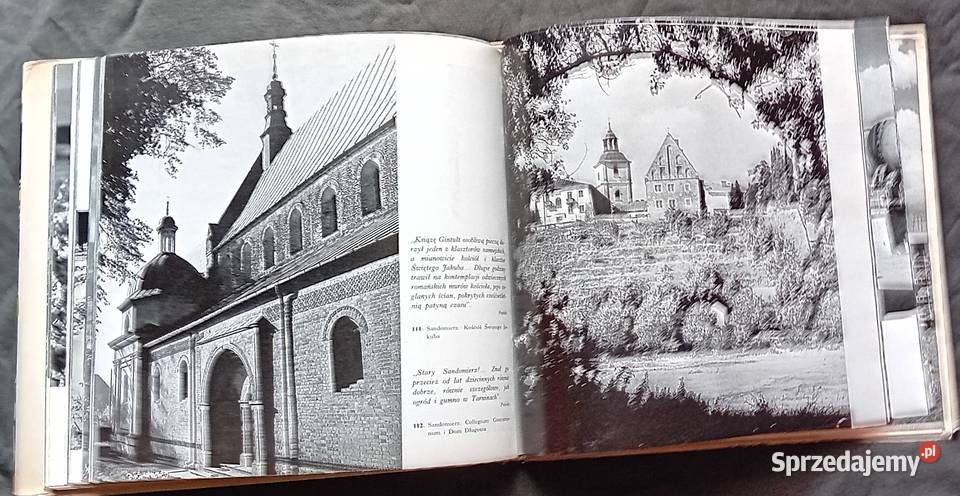 „Książę Gintult osobliwą pieczą da-
rzył jeden z klasztorów tamtejszych,
a mianowicie kościół i klasztor
Świętego Jakuba... Długie godziny
trawił na kontemplacji odziecznych
romańskich murów kościoła, jego o-
glanych ścian, pokrytych
nią patyną czasu".
111. Sandomierz. Kościół Świętego Ja-
kuba
„Stary Sandomierz!... Znał go
przecież od lat dziecinnych równie
dobrze, równie szczegółowo, jak
ogród i gumno w Tarninach"
112. Sandomierz. Collegium Gostomia-
num i Dom Długosza
Sprzedajemy.pl